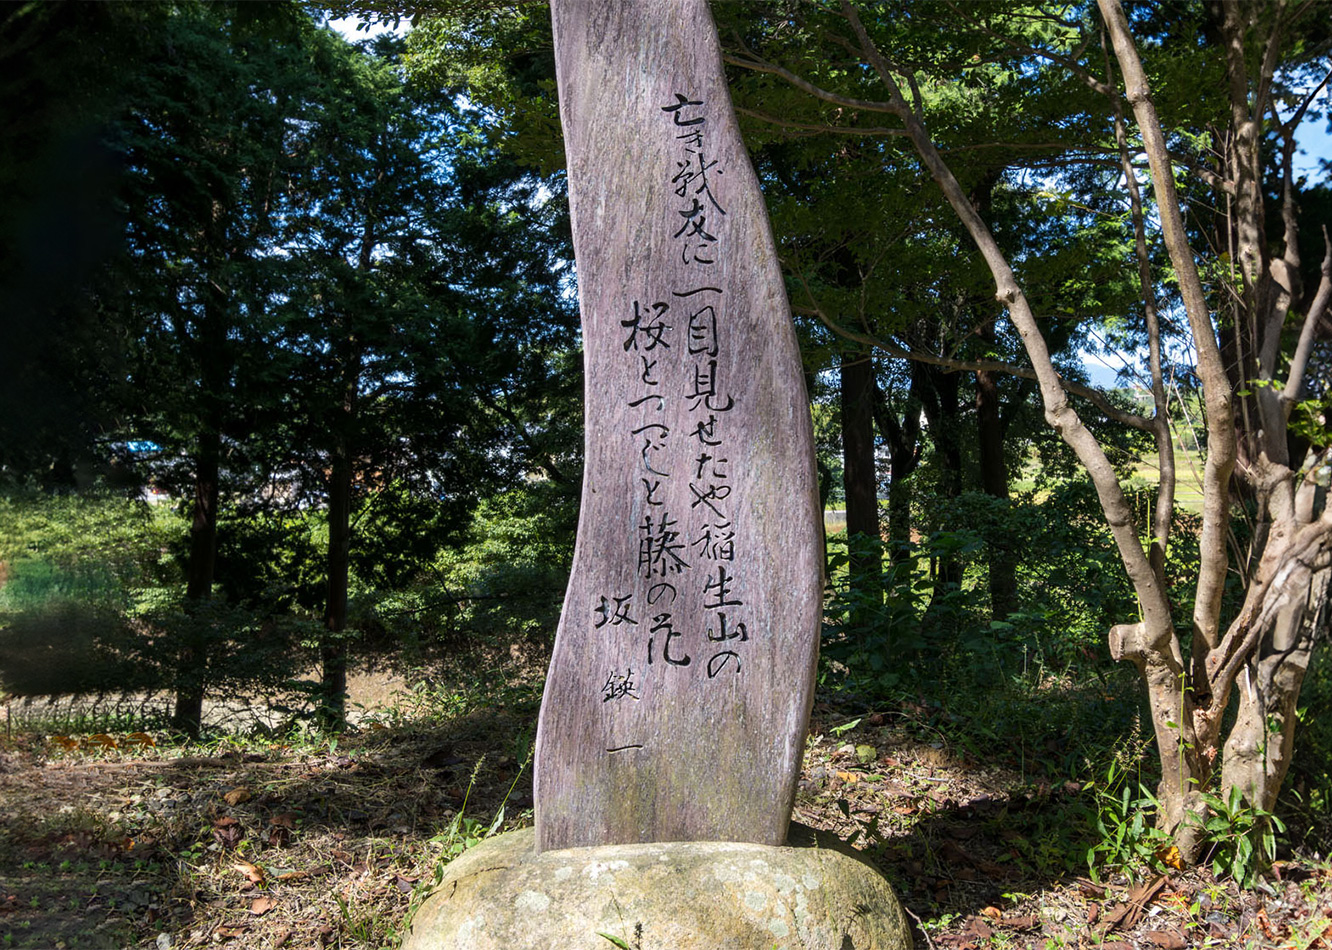 亡き戦友に一目見せたや稲生山の
桜とつつじと藤の花
坂鎹一